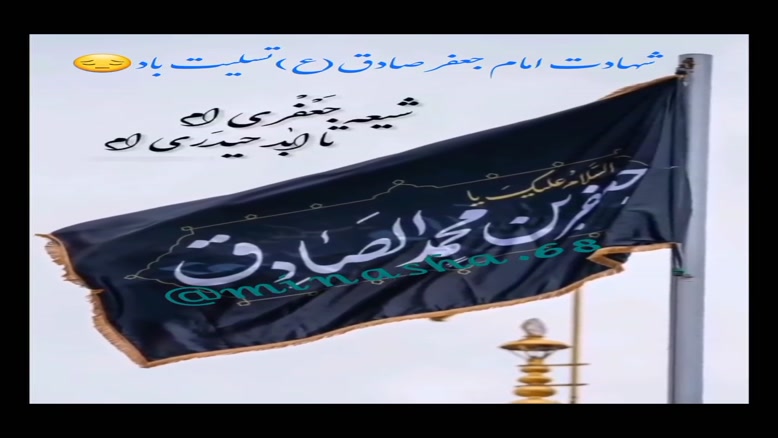 شهادت امام جعفر صادق(ع)تسلیت باد😔
شیعه جَعْفَری ام
تا ابد حیدَری ام
السلام علیک یا
جعفر بن محمد الصادق
@minasha.68